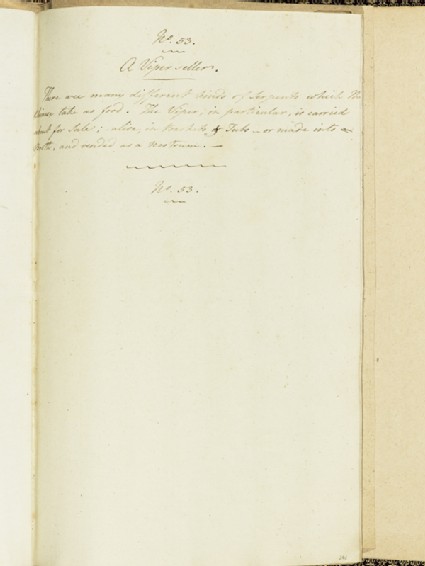 No. 53.
A Viper-seller.
There are many different kinds of Serpents which the
Chinese take as food. The Viper, in particular, is carried
about for Sale; alive, in Buckets & Tubs — or made into a
broth, and vended as a nostrum. —
No. 53.